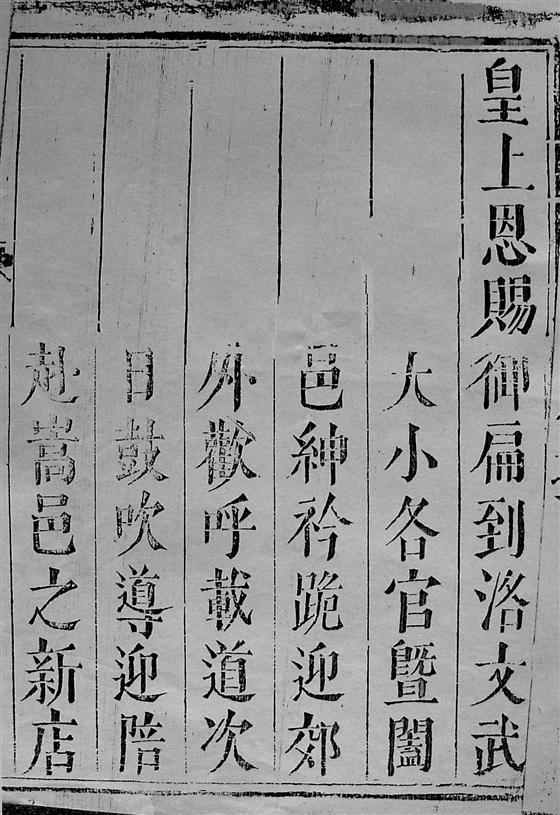 皇上恩賜御扁到洛文武
大小各官曁闔
邑紳衿跪迎郊
外歡呼載道次
日鼓吹導迎陪
赴嵩邑之新店